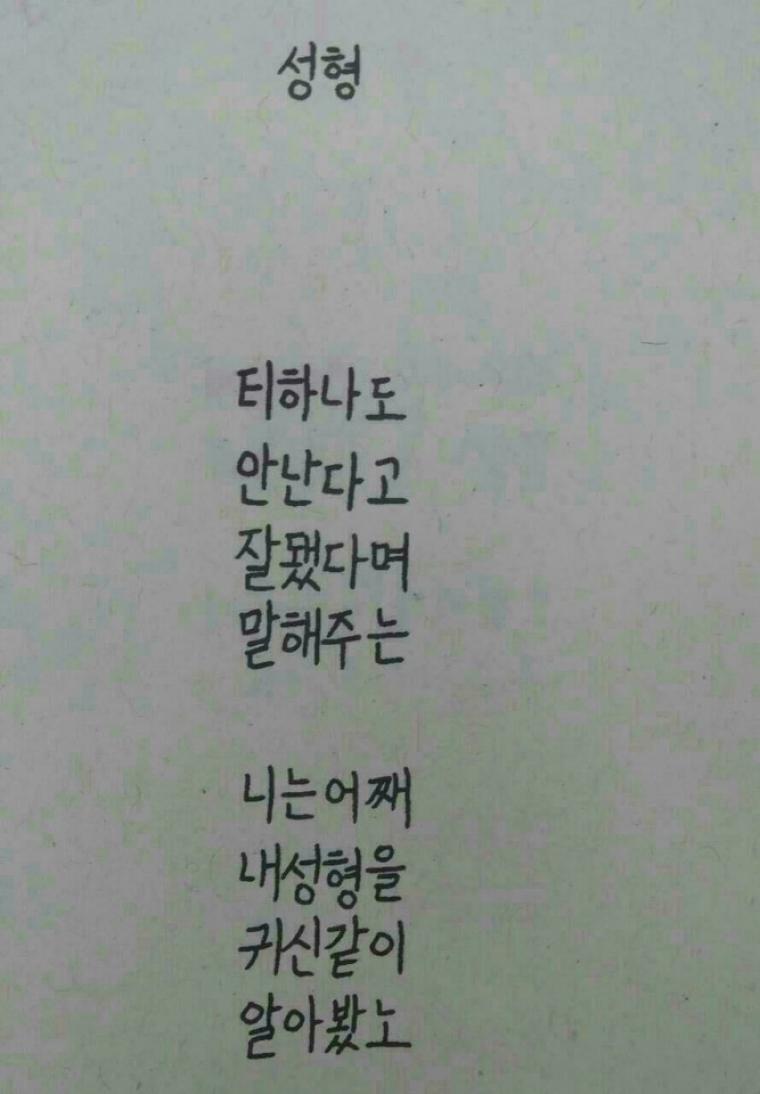 성형
티하나도
안난다고
잘됐다며
말해주는
니는어째
내성형을
귀신같이
알아봤노